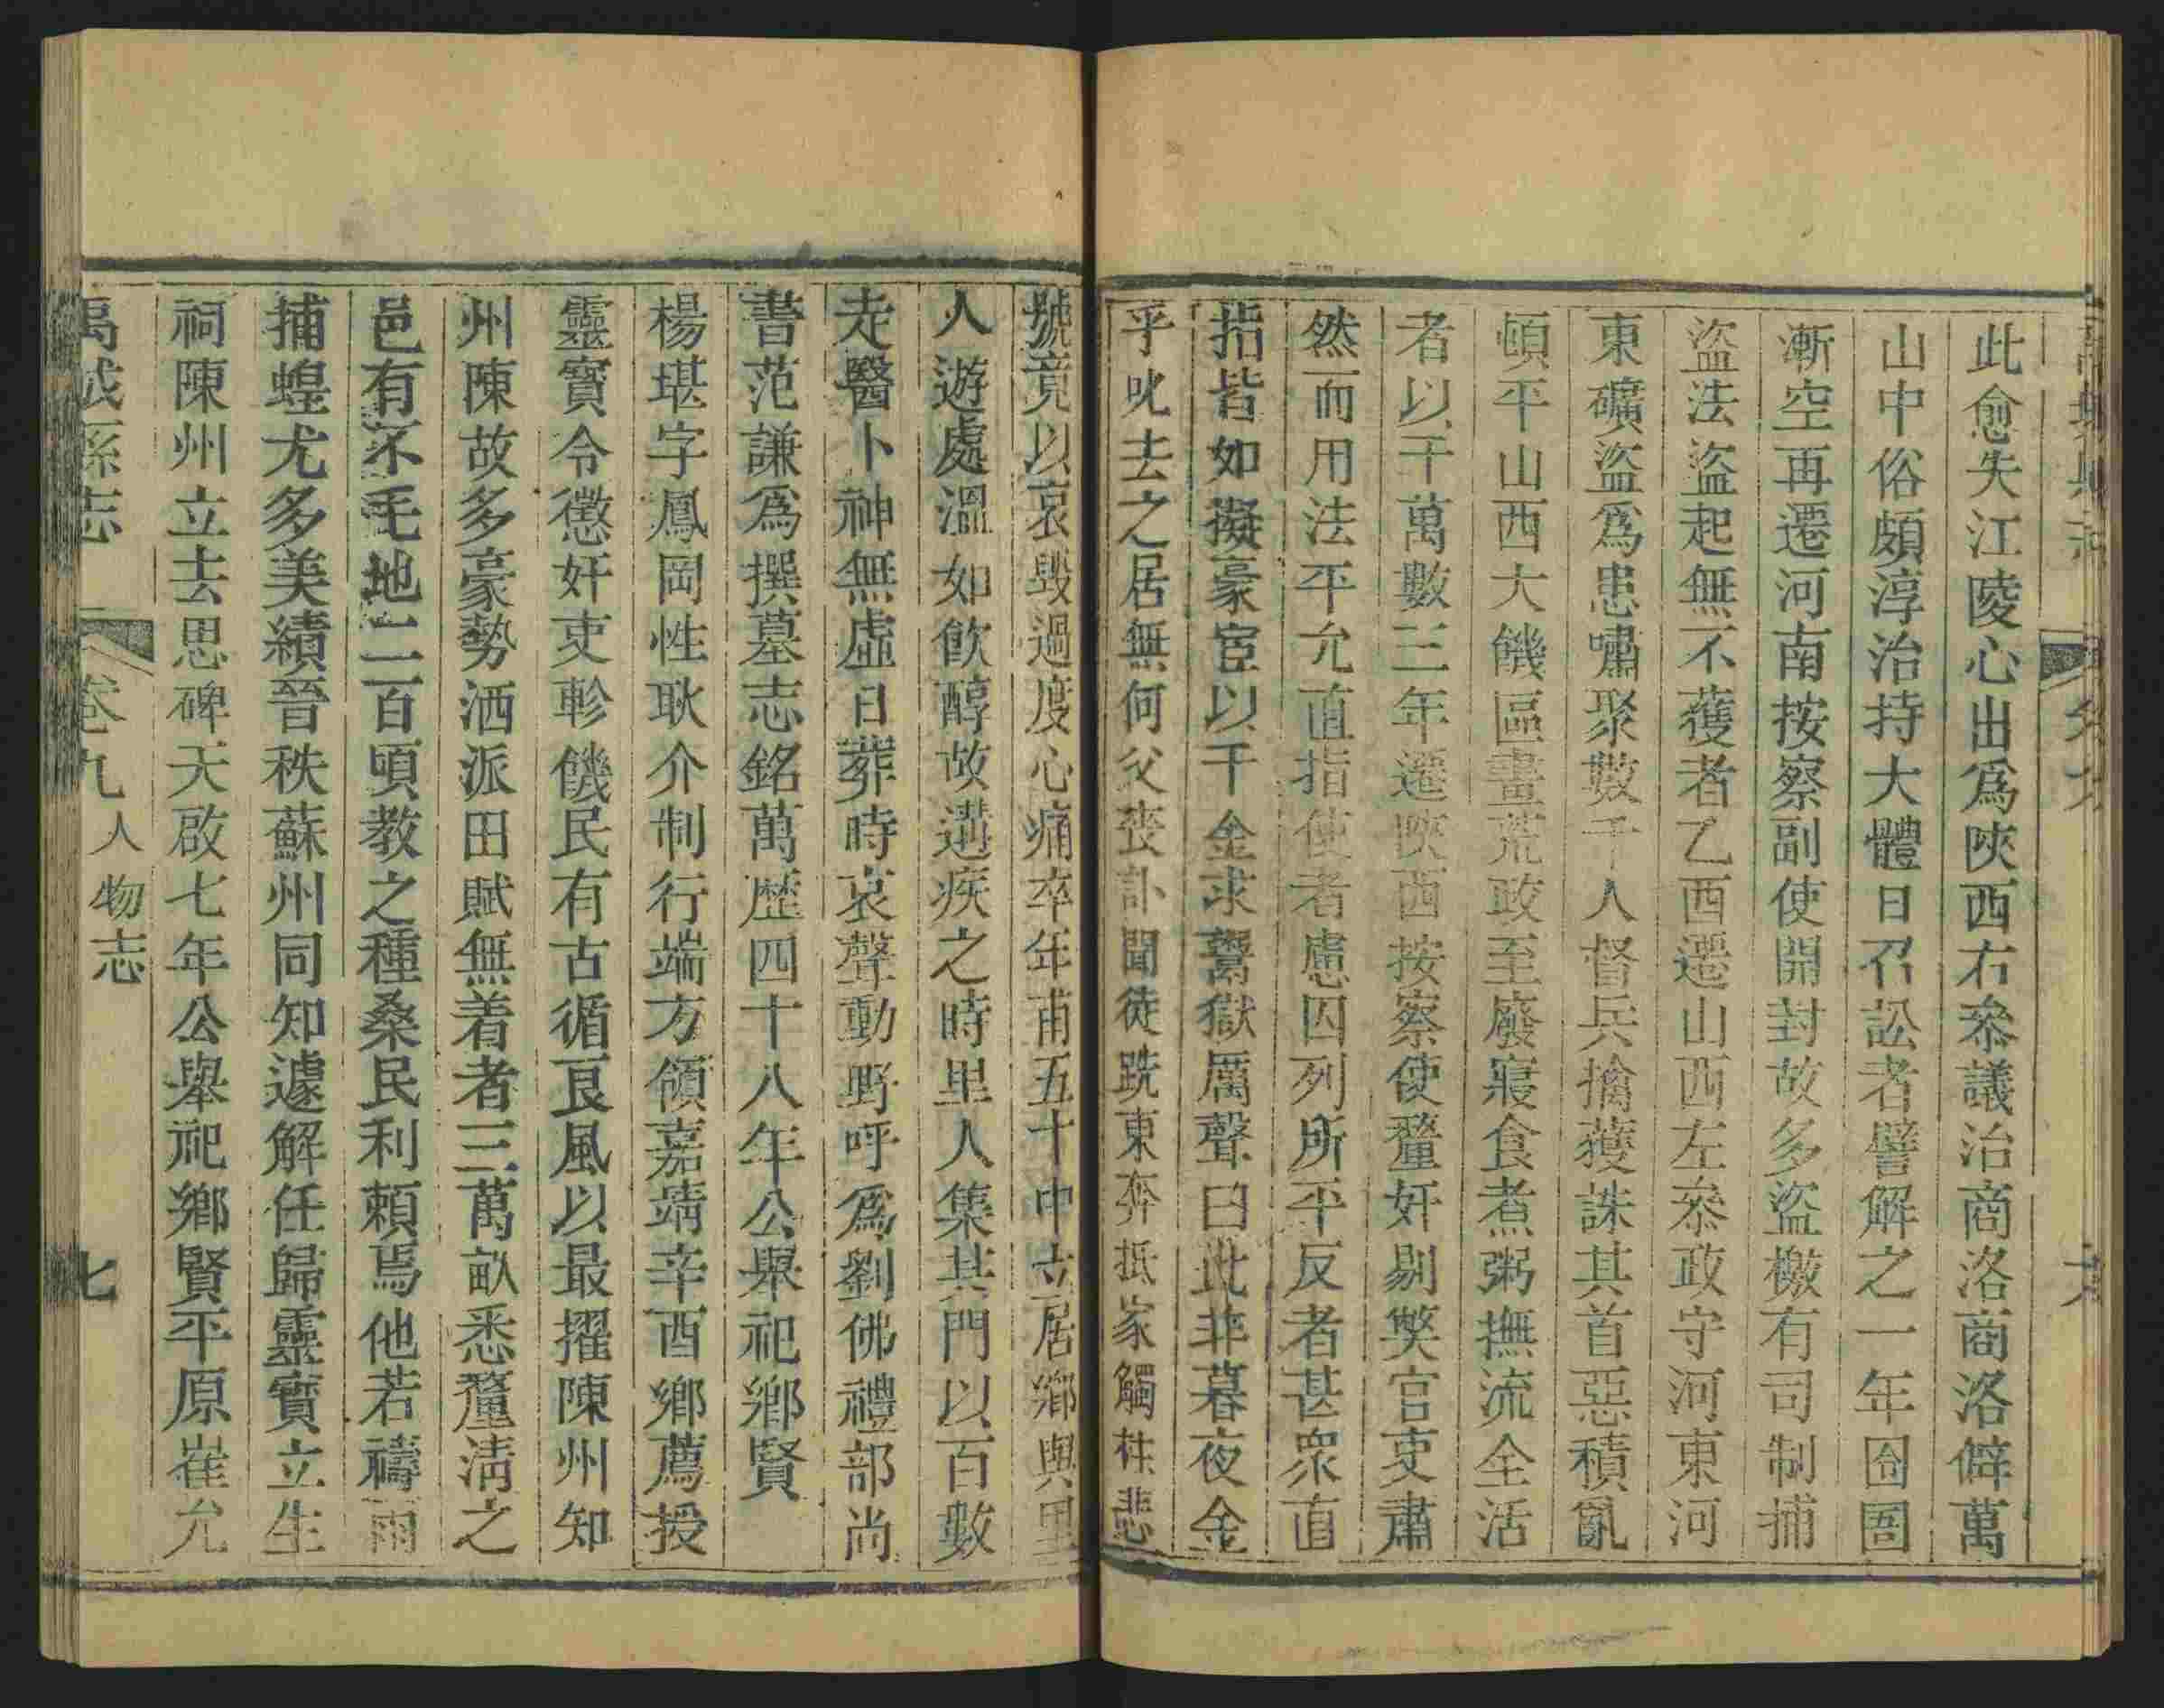 此愈失江陵心出爲陜西右叅議治商洛商洛僻萬
山中俗頗淳治持大體日召訟者譬解之一年囹圄
漸空再遷河南按察副使開封故多盜檄有司制捕
盜法盜起無不獲者乙酉遷山西左叅政守河東河
東礦盜爲患嘯聚數千人督兵擒獲誅其首惡積亂
頓平山西大饑區畫荒政至廢寢食煮粥撫流全活
者以千萬數三年遷陜西按察使釐奸剔弊官吏肅
然而用法平允直指使者慮囚列所平反者甚衆直
指皆如擬豪宦以千金求鬻獄厲聲曰此非暮夜金
乎叱去之居無何父喪訃聞徒跣東奔抵家觸柱悲
號竟以哀毀過度心痛卒年甫五十中立居鄉與里
人遊處溫如飲醇故遘疾之時里人集其門以百數
走醫卜神無虛日葬時哀聲動野呼爲劉佛禮部尚
書范謙爲撰墓志銘萬歷四十八年公舉祀鄉賢
楊堪字鳳岡性耿介制行端方領嘉靖辛酉鄉薦授
靈寶令懲奸吏軫饑民有古循良風以最擢陳州知
州陳故多豪勢洒派田賦無着者三萬畝悉釐淸之
邑有不毛地二百頃教之種桑民利頼焉他若禱雨
捕蝗尤多美績晉秩蘇州同知遽解任歸靈寶立生
祠陳州立去思碑天啟七年公舉祀鄉賢平原崔允
禹城縣志 卷九 人物志 七